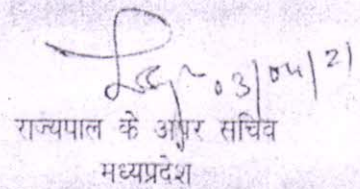 03/04/21
राज्यपाल के अपर सचिव
मध्यप्रदेश